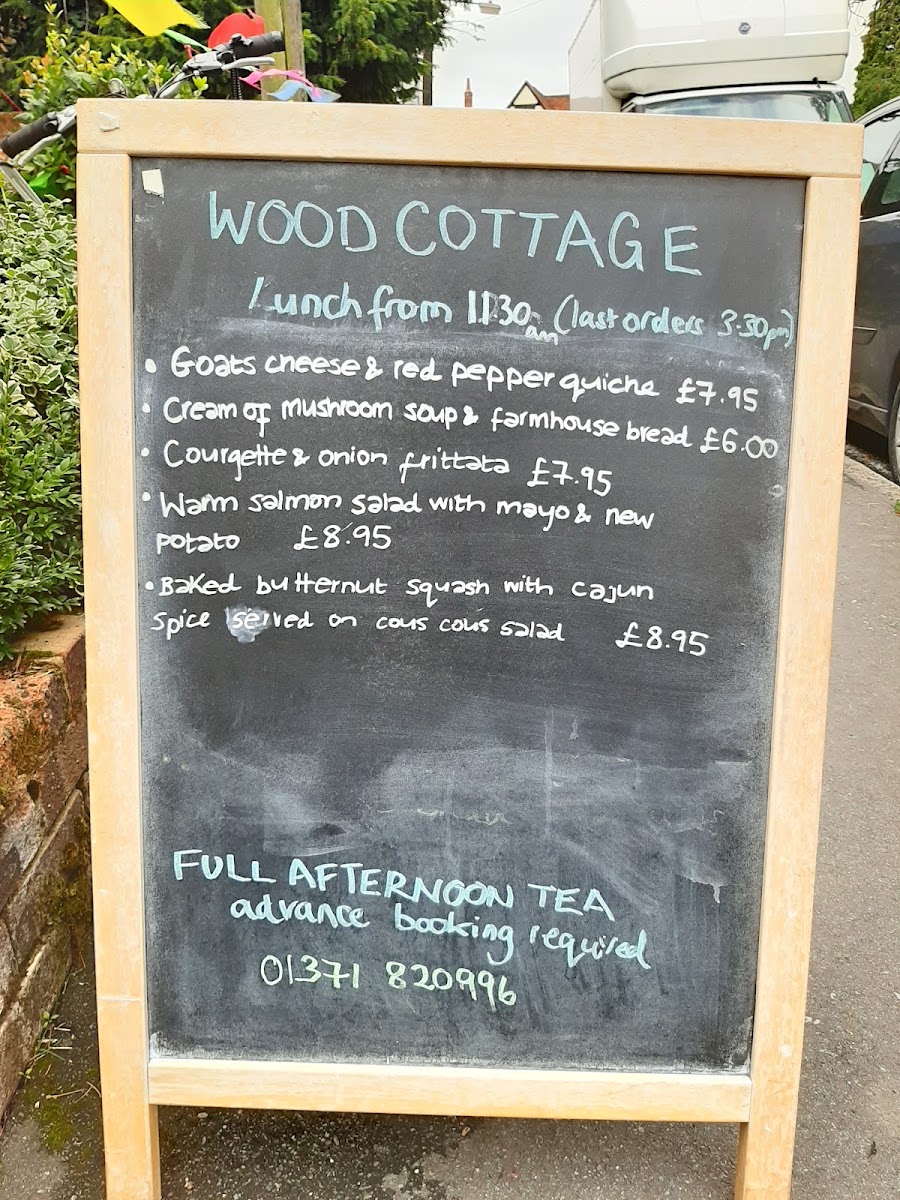 WOOD COTTAGE
Lunch from 11.30am (last orders 3.30pm)
• Goats cheese & red pepper quiche £7.95
• Cream of mushroom soup & farmhouse bread £6.00
• Courgette & onion frittata £7.95
• Warm salmon salad with mayo & new
potato £8.95
• Baked butternut squash with cajun
spice served on cous cous salad £8.95
FULL AFTERNOON TEA
advance booking required
01371 820996